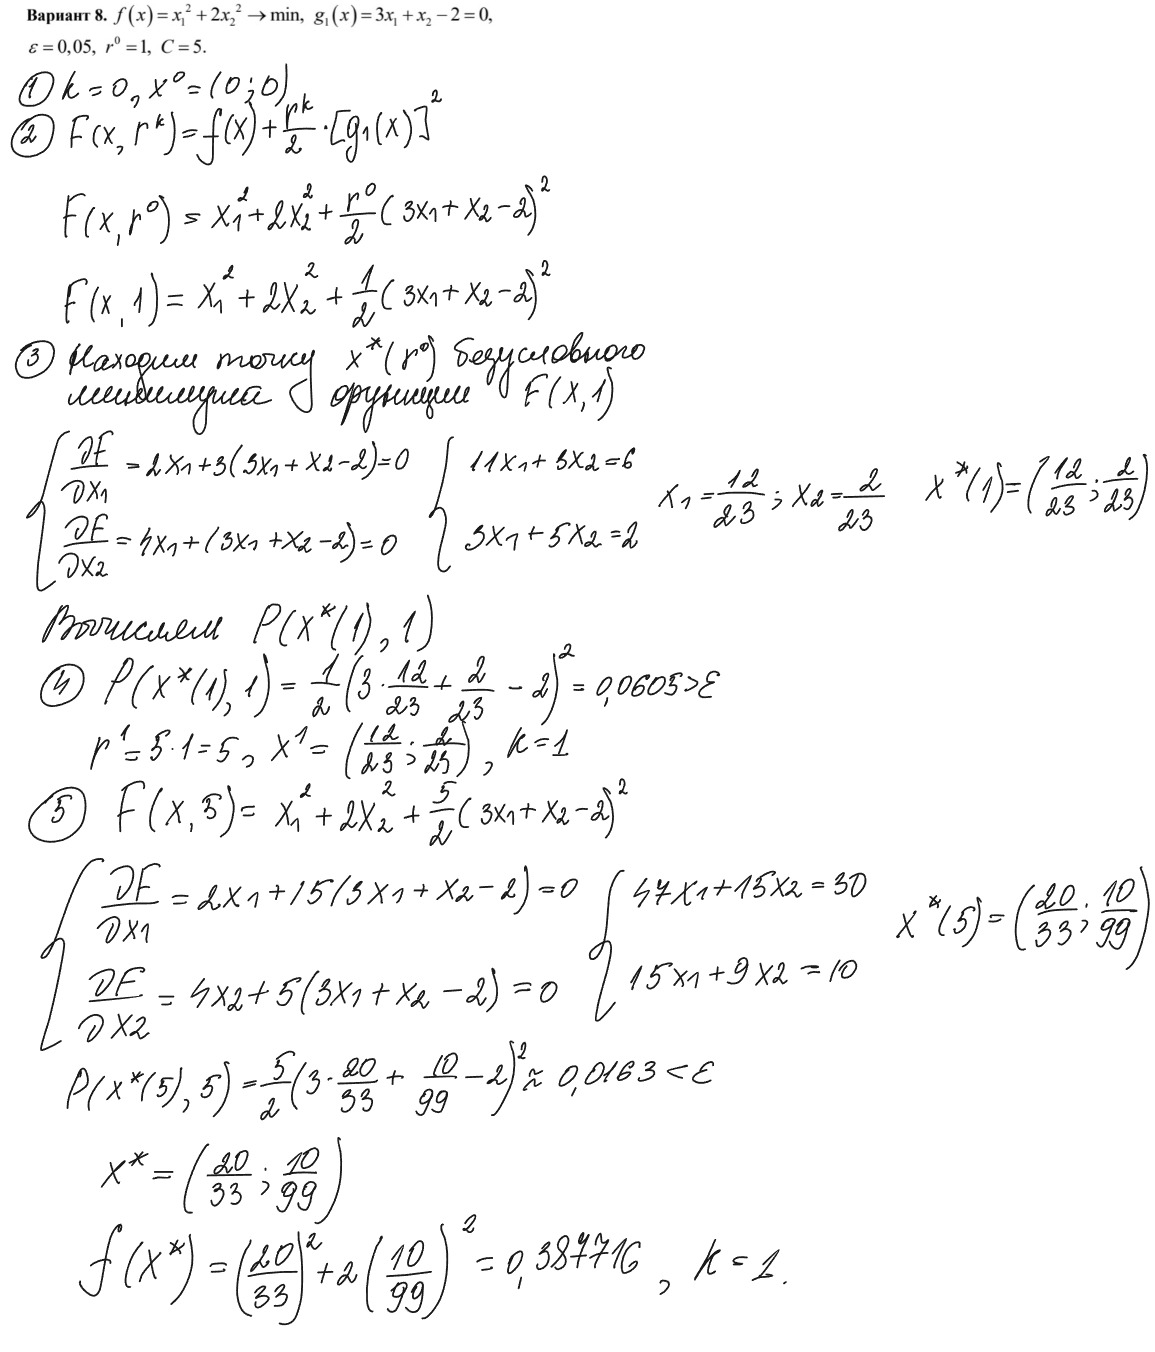 Вариант 8. f(x) = x₁² + 2x₂² → min, g₁(x) = 3x₁ + x₂ − 2 = 0,
ε = 0,05, r⁰ = 1, C = 5.
① k = 0, x⁰ = (0; 0)
② F(x, rᵏ) = f(x) + rᵏ/2 · [g₁(x)]²
F(x, r⁰) = x₁² + 2x₂² + r⁰/2 (3x₁ + x₂ − 2)²
F(x, 1) = x₁² + 2x₂² + 1/2 (3x₁ + x₂ − 2)²
③ Находим точку x*(r⁰) безусловного
минимума функции F(x, 1)
{ ∂F/∂x₁ = 2x₁ + 3(3x₁ + x₂ − 2) = 0 { 11x₁ + 3x₂ = 6
x₁ = 12/23 ; x₂ = 2/23 x*(1) = (12/23 ; 2/23)
∂F/∂x₂ = 4x₁ + (3x₁ + x₂ − 2) = 0 3x₁ + 5x₂ = 2
Вычисляем P(x*(1), 1)
④ P(x*(1), 1) = 1/2 (3 · 12/23 + 2/23 − 2)² = 0,0605 > ε
r¹ = 5 · 1 = 5, x¹ = (12/23 ; 2/23), k = 1
⑤ F(x, 5) = x₁² + 2x₂² + 5/2 (3x₁ + x₂ − 2)²
{ ∂F/∂x₁ = 2x₁ + 15(3x₁ + x₂ − 2) = 0 { 47x₁ + 15x₂ = 30 x*(5) = (20/33 ; 10/99)
∂F/∂x₂ = 4x₂ + 5(3x₁ + x₂ − 2) = 0 15x₁ + 9x₂ = 10
P(x*(5), 5) = 5/2 (3 · 20/33 + 10/99 − 2)² ≈ 0,0163 < ε
x* = (20/33 ; 10/99)
f(x*) = (20/33)² + 2(10/99)² = 0,387716, k = 1.